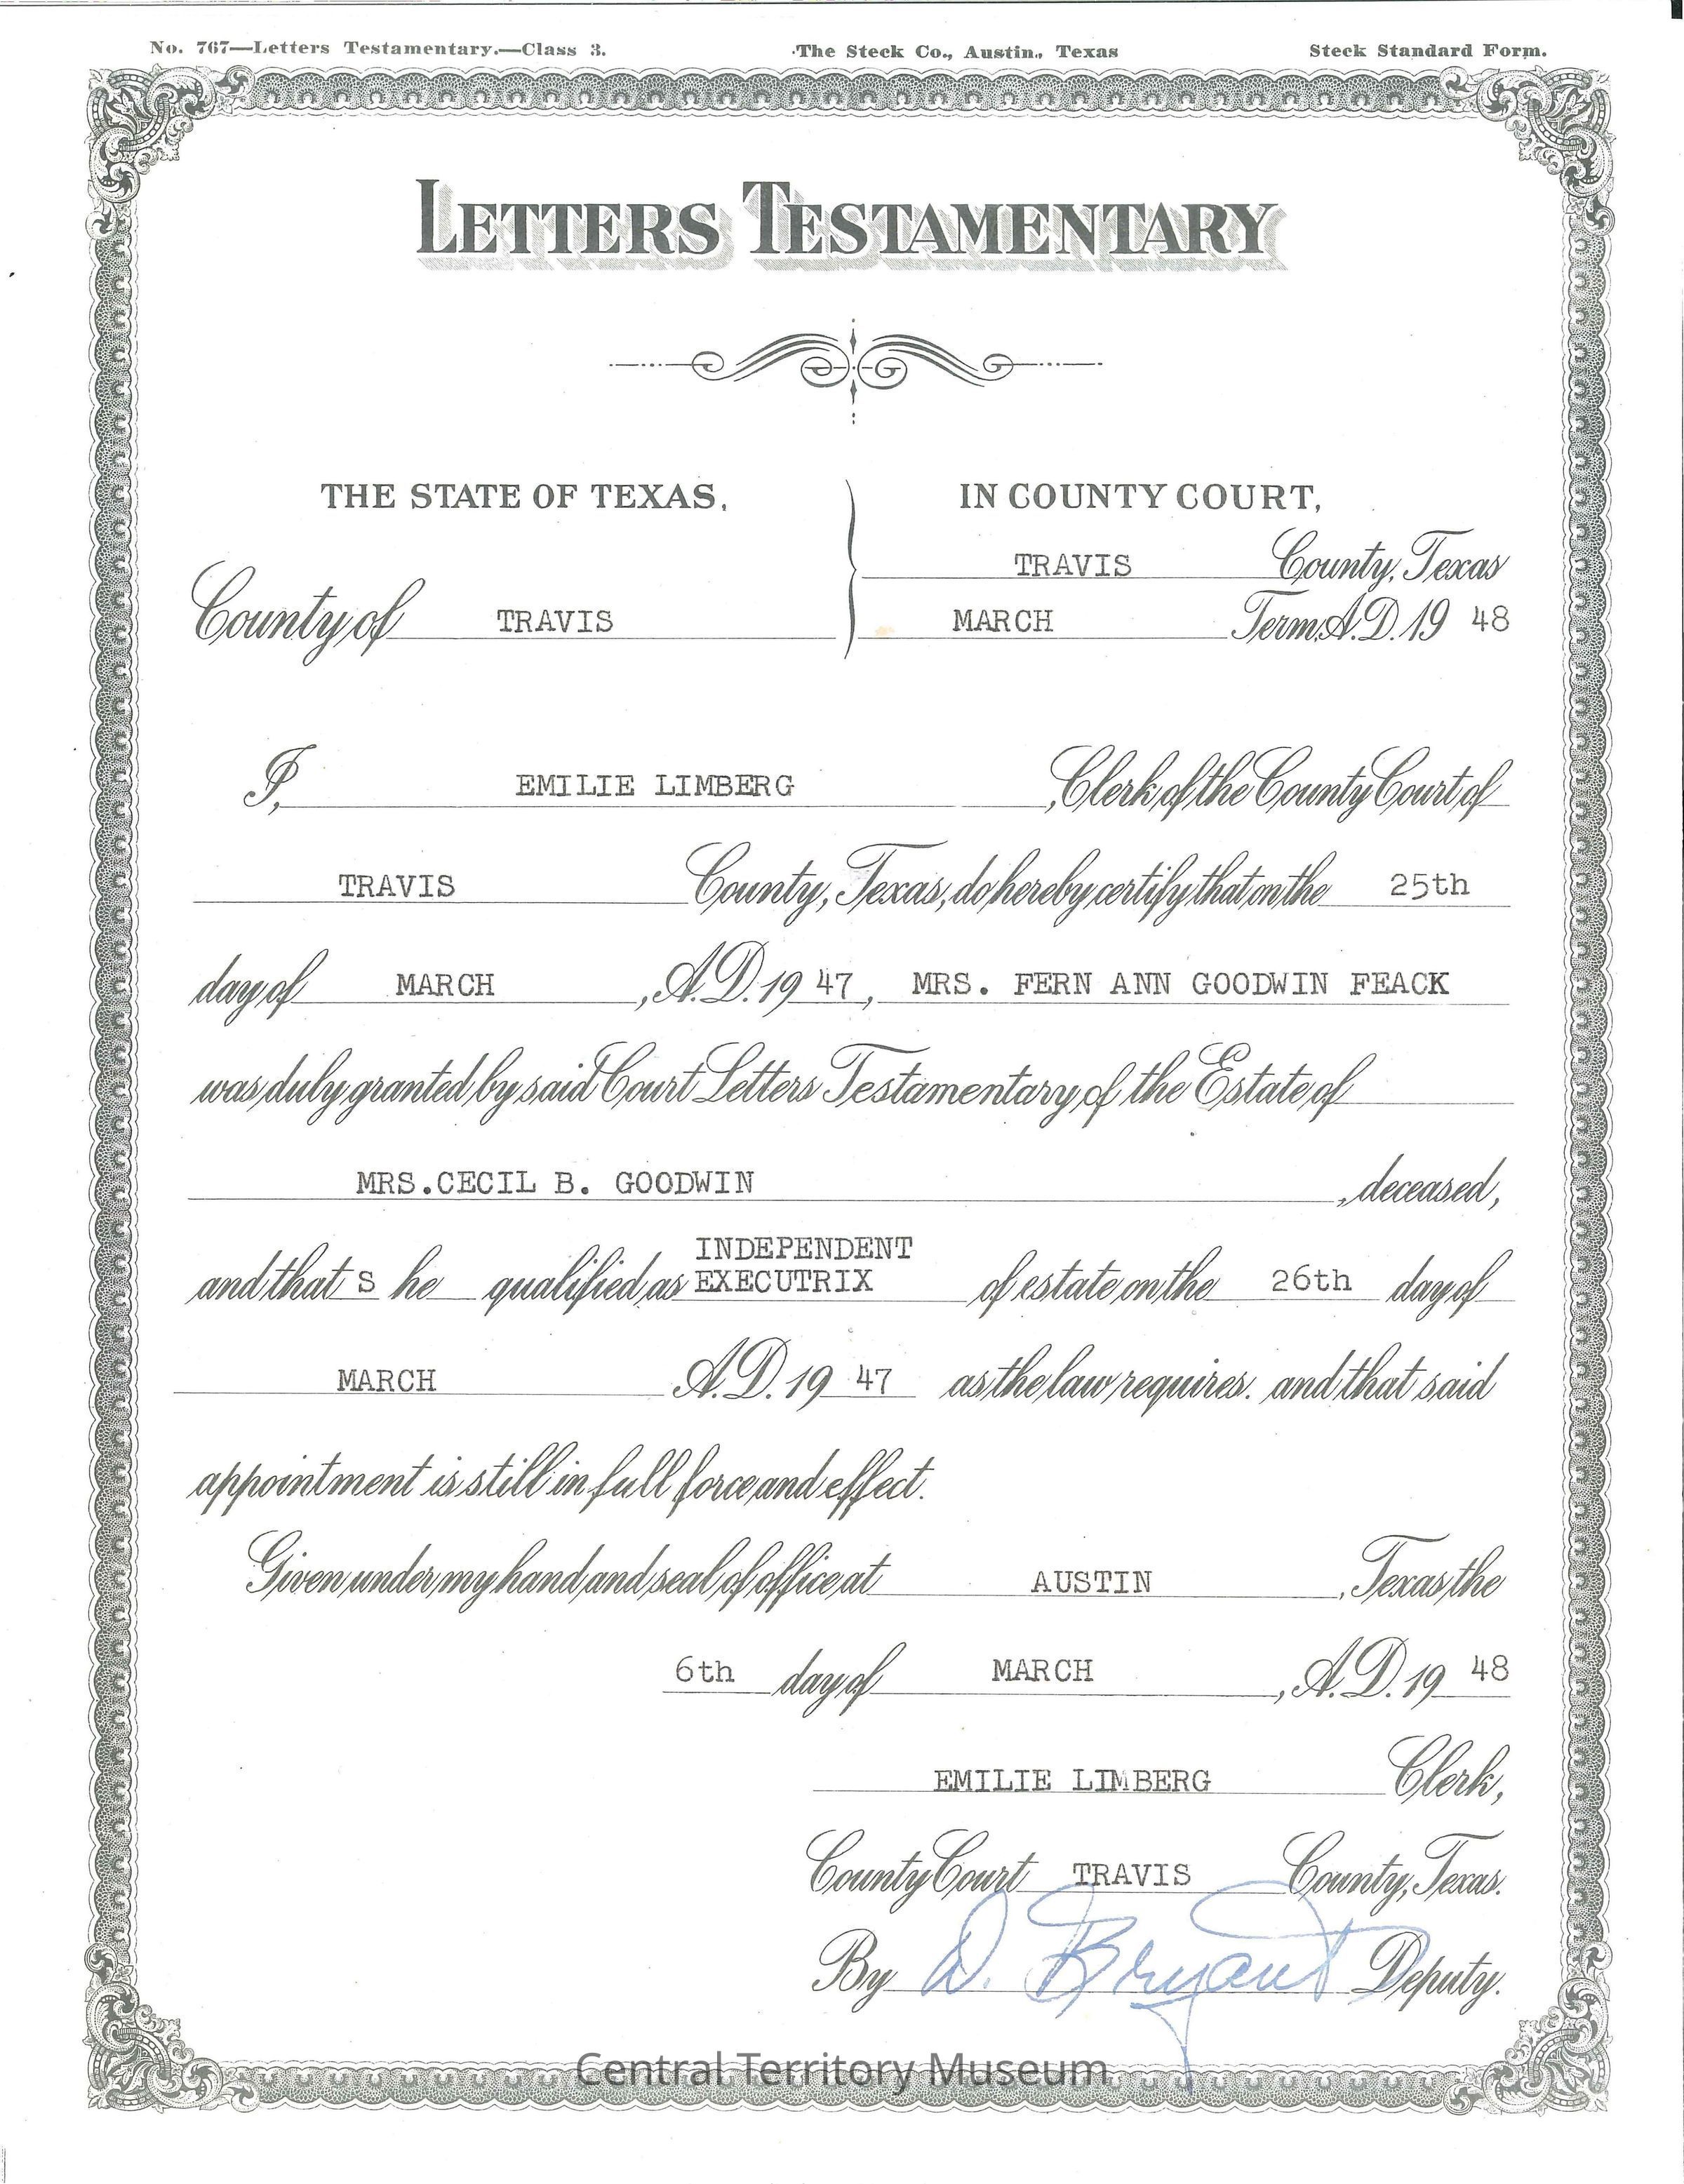 No. 767—Letters Testamentary.—Class 3. The Steck Co., Austin, Texas Steck Standard Form.
LETTERS TESTAMENTARY
THE STATE OF TEXAS, IN COUNTY COURT,
TRAVIS County, Texas
County of TRAVIS MARCH Term A.D. 19 48
I, EMILIE LIMBERG, Clerk of the County Court of
TRAVIS County, Texas, do hereby certify that on the 25th
day of MARCH, A.D. 19 47, MRS. FERN ANN GOODWIN FEACK
was duly granted by said Court Letters Testamentary of the Estate of
MRS.CECIL B. GOODWIN, deceased,
INDEPENDENT
and that S he qualified as EXECUTRIX of estate on the 26th day of
MARCH A.D. 19 47 as the law requires. and that said
appointment is still in full force and effect.
Given under my hand and seal of office at AUSTIN, Texas the
6th day of MARCH, A.D. 19 48
EMILIE LIMBERG Clerk,
County Court TRAVIS County, Texas.
By D. Bryant Deputy.
Central Territory Museum